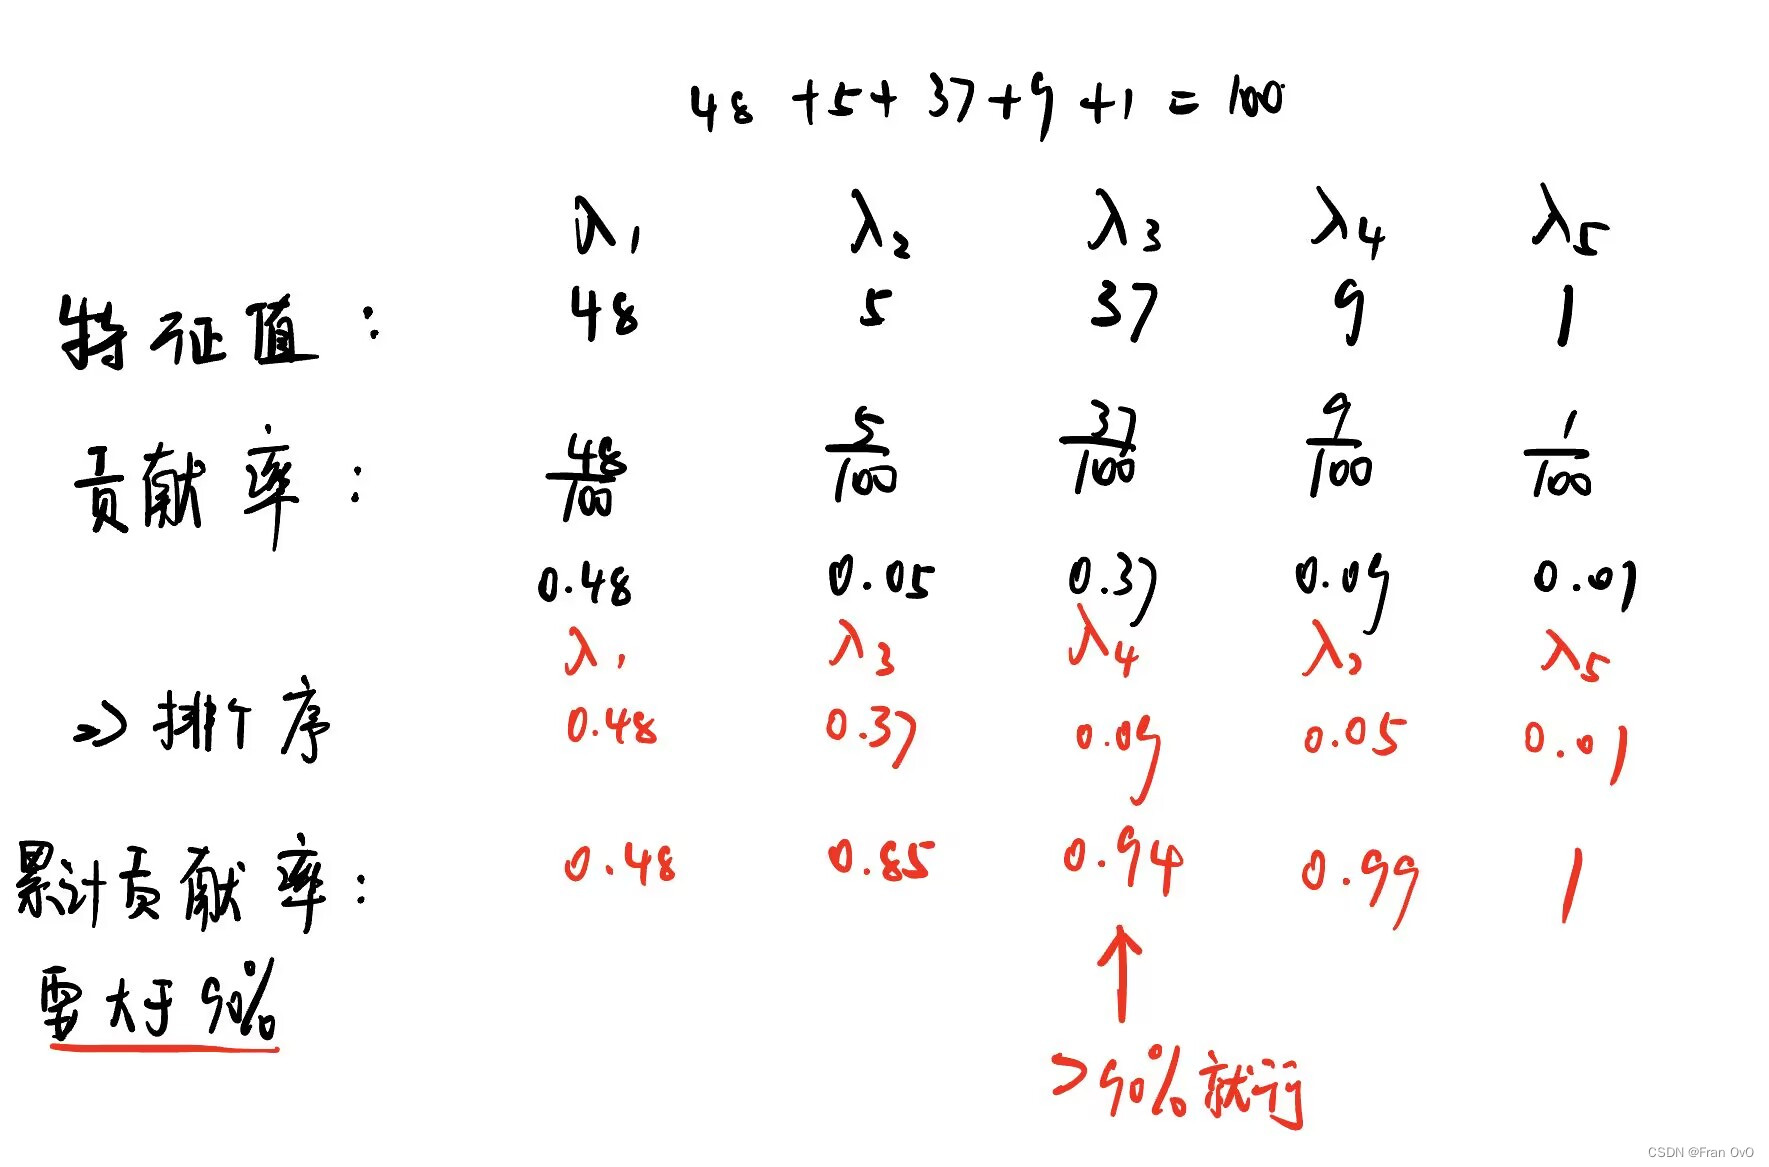 48 + 5 + 37 + 9 + 1 = 100
λ1 λ2 λ3 λ4 λ5
特征值: 48 5 37 9 1
贡献率: 48/100 5/100 37/100 9/100 1/100
0.48 0.05 0.37 0.09 0.01
λ1 λ3 λ4 λ2 λ5
=> 排个序 0.48 0.37 0.09 0.05 0.01
累计贡献率: 0.48 0.85 0.94 0.99 1
要大于90%
>90%就行
CSDN @Fran OvO